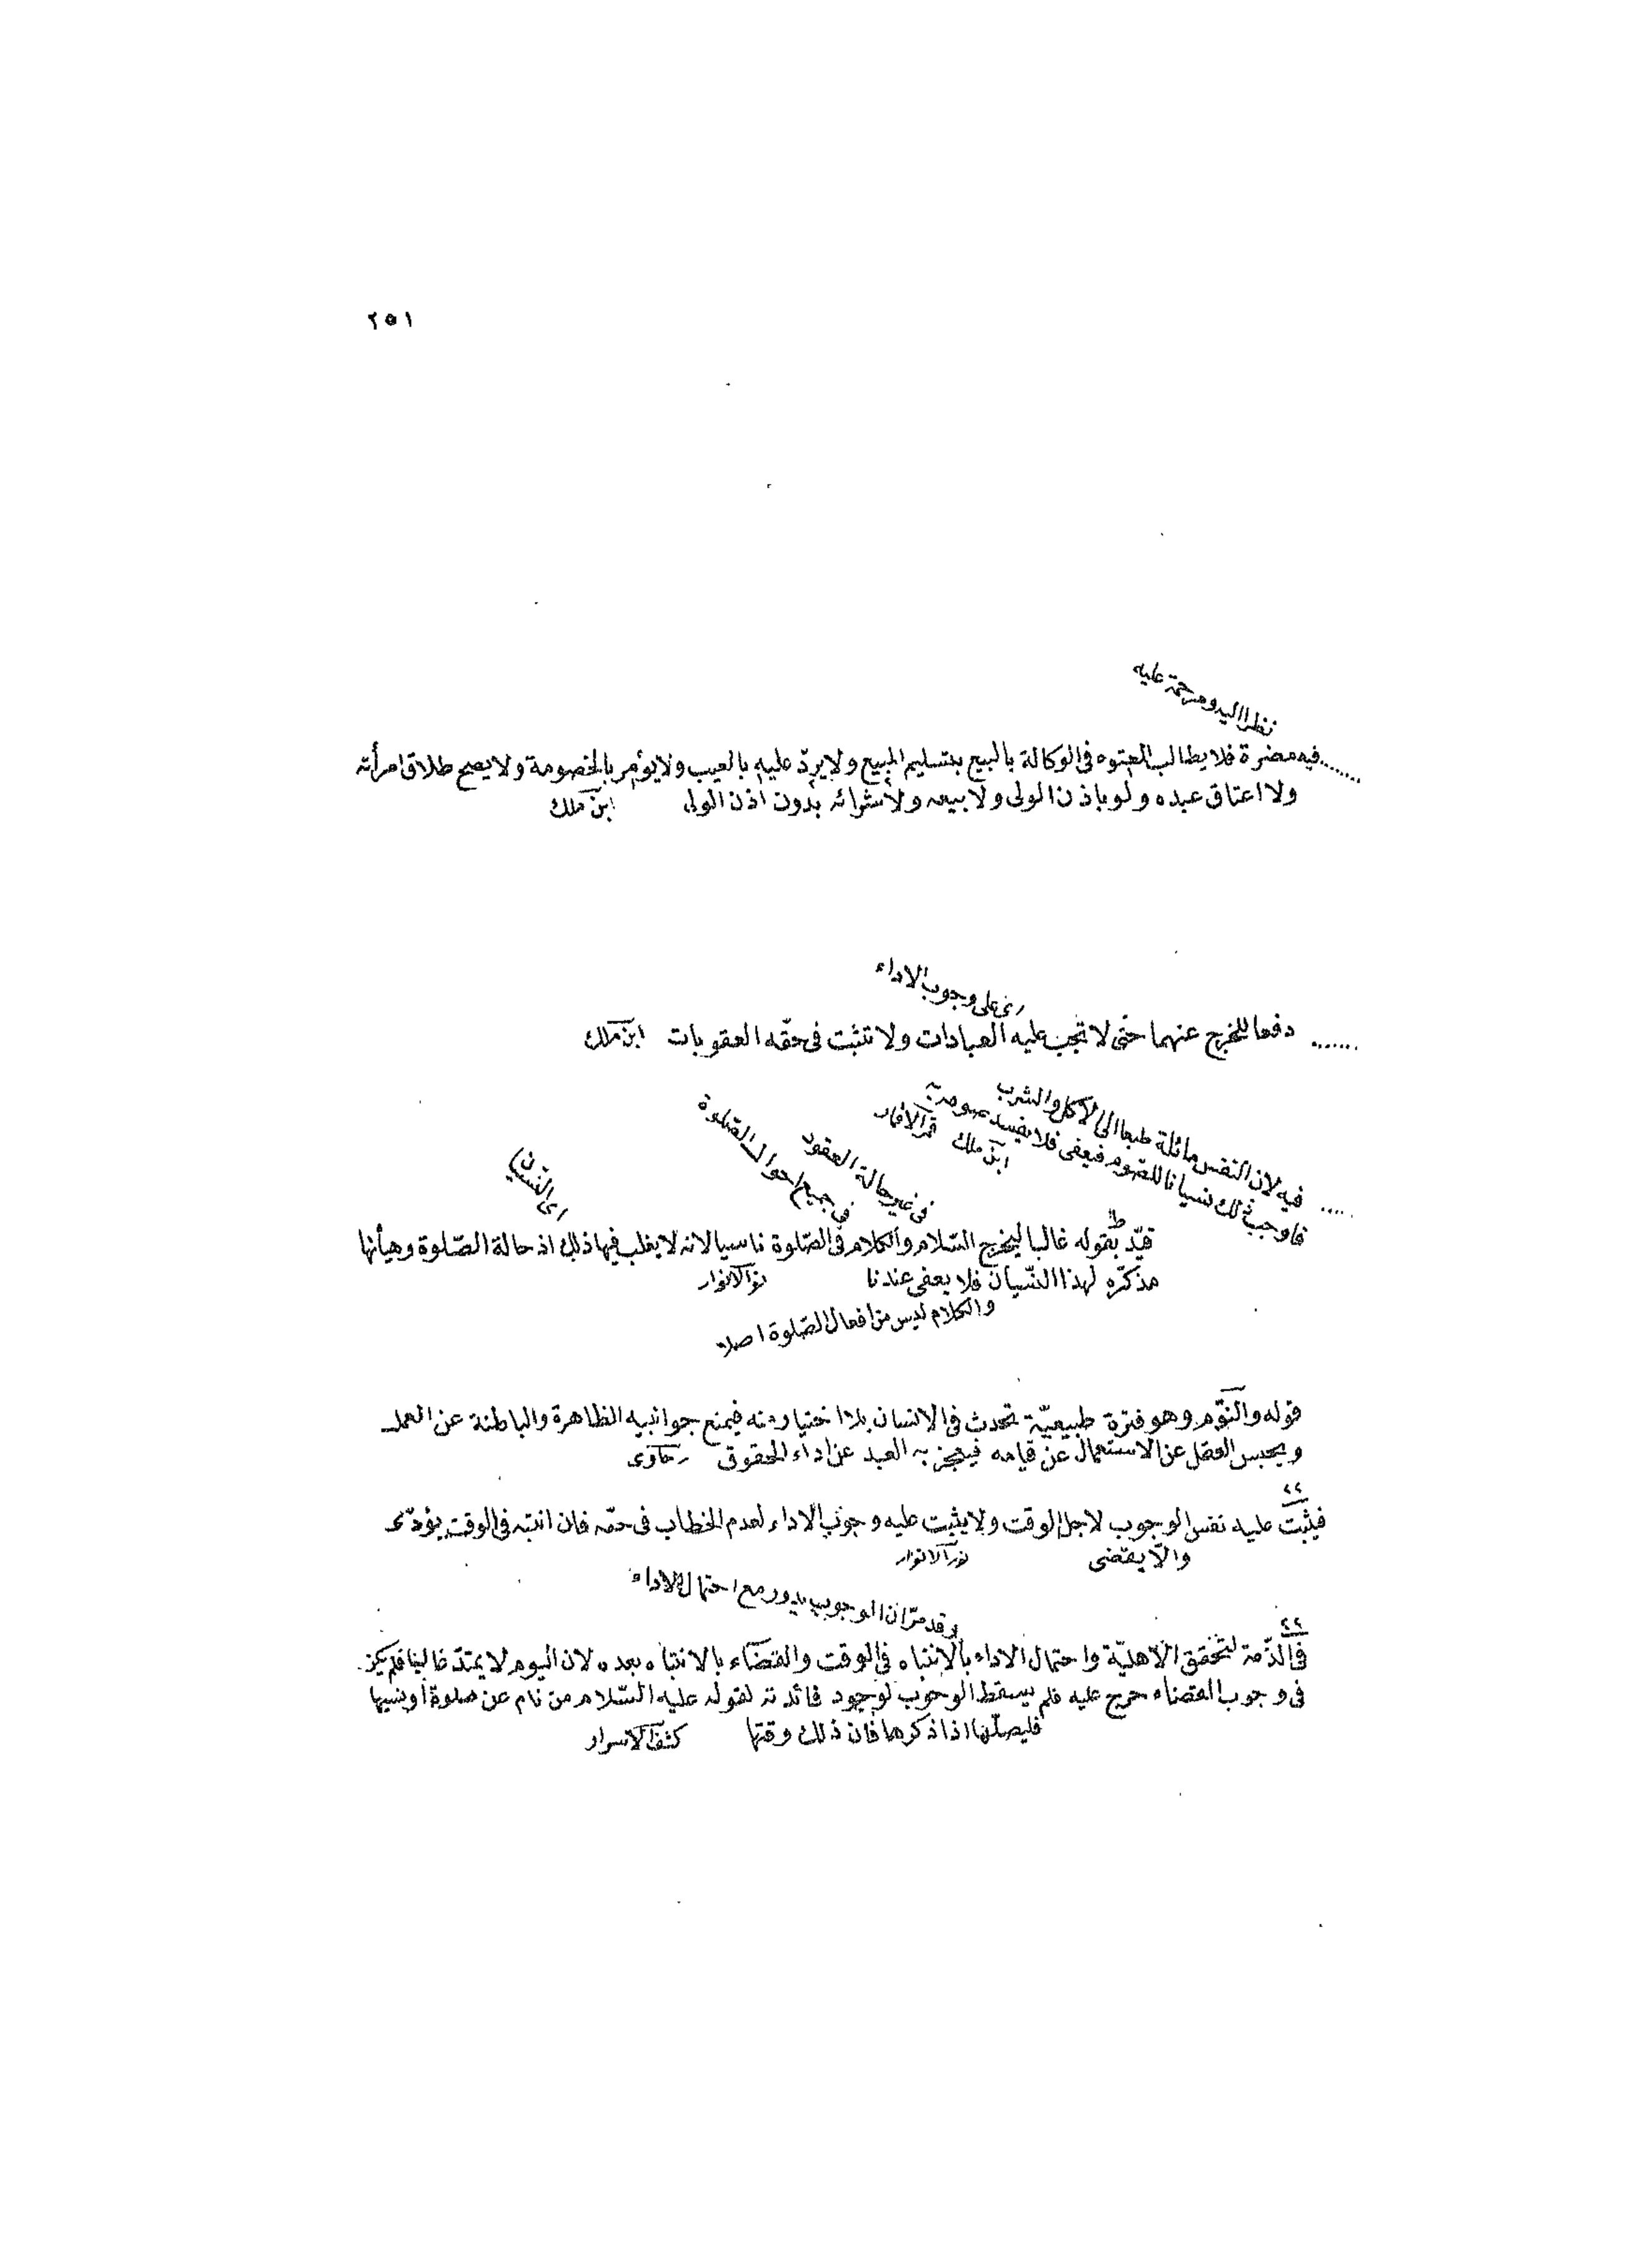 ٢٥١
نظرا اليه ومرحمة عليه
........ فيه مضرة فلا يطالب المعتوه فى الوكالة بالبيع بتسليم المبيع ولا يردّ عليه بالعيب ولا يؤمر بالخصومة ولا يصح طلاق امرأته
ولا اعتاق عبده ولو باذن الولى ولا بيعه ولا شرائه بدون اذن الولى ابن ملك
اى على وجوب الاداء
....... دفعا للحرج عنهما حتّى لا تجب عليه العبادات ولا تثبت فى حقّه العقوبات ابن ملك
..... فيه لان النفس مائلة طبعا الى الاكل والشرب
فاوجب ذلك نسيانا للصوم فيعفى فلا يفسد صومه به
ابن ملك قمر الاقمار
فى غير حالة العقود
فى جميع احوال الصّلوة
اى النسيان
قيّد بقوله غالبا ليخرج السّلام والكلام فى الصّلوة ناسيا لانه لا يغلب فيها ذلك اذ حالة الصّلوة وهيأتها
مذكّره لهذا النّسيان فلا يعفى عندنا نور الانوار
والكلام ليس من افعال الصّلوة اصلا
قوله والنّوم وهو فترة طبيعيّة تحدث فى الانسان بلا اختيار منه فيمنع حواسه الظاهرة والباطنة عن العمل
ويحبس العقل عن الاستعمال عن قيامه فيعجز به العبد عن اداء الحقوق رهاوى
فيثبت عليه نفس الوجوب لاجل الوقت ولا يثبت عليه وجوب الاداء لعدم الخطاب فى حقّه فان انتبه فى الوقت يؤدّى
والاّ يقضى نور الانوار
وقد مرّ ان الوجوب يدور مع احتمال الاداء
فى الذّمة لتحقق الاهليّة واحتمال الاداء بالانتباه فى الوقت والقضاء بالانتباه بعده لان النوم لا يمتدّ غالبا فلم يكن
فى وجوب القضاء حرج عليه فلم يسقط الوجوب لوجود فائدته لقوله عليه السّلام من نام عن صلوة او نسيها
فليصلّها اذا ذكرها فان ذلك وقتها كشف الاسرار